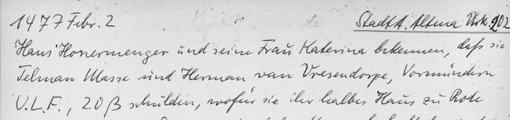 1477 Febr. 2 Stadt A. Altena Urk. 202
Hans Honermenger und seine Frau Katerina bekennen, daß sie
Telman Masse und Herman van Vresendorpe, Vormündern
U.L.F., 20 ß schulden, wofür sie ihr halbes Haus zu Rode